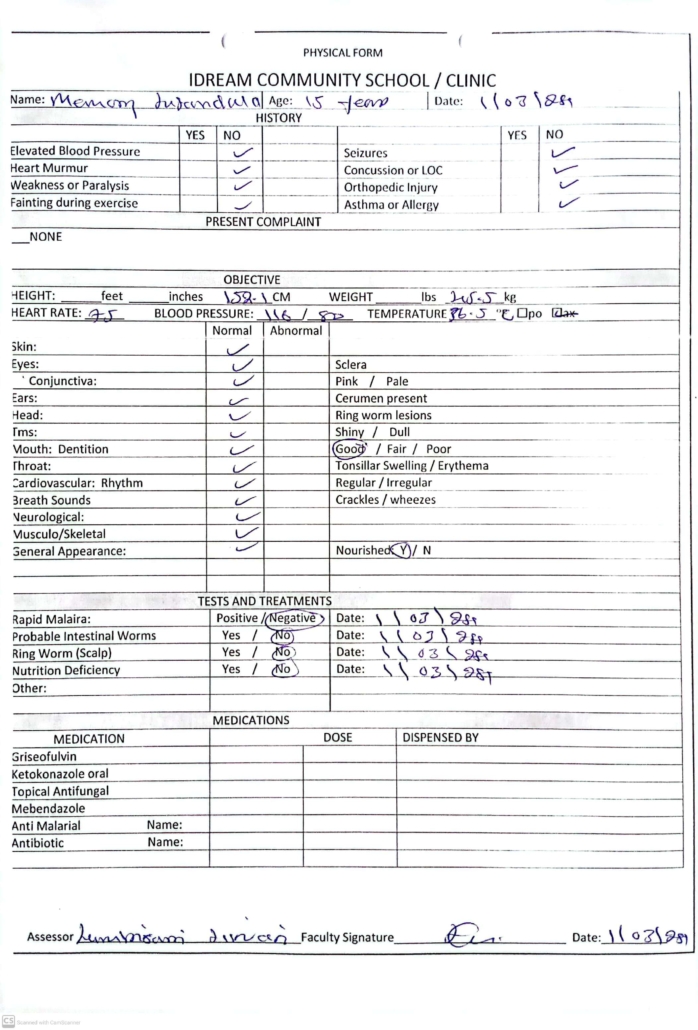 PHYSICAL FORM
IDREAM COMMUNITY SCHOOL / CLINIC
Name: Age: 15 years Date:
HISTORY
YES NO YES NO
Elevated Blood Pressure Seizures
Heart Murmur Concussion or LOC
Weakness or Paralysis Orthopedic Injury
Fainting during exercise Asthma or Allergy
PRESENT COMPLAINT
__NONE
OBJECTIVE
HEIGHT: ______feet ______inches 152.1 CM WEIGHT ______lbs kg
HEART RATE: 75 BLOOD PRESSURE: 116 / 80 TEMPERATURE 36.5 °C, po
Normal Abnormal
Skin:
Eyes: Sclera
Conjunctiva: Pink / Pale
Ears: Cerumen present
Head: Ring worm lesions
Tms: Shiny / Dull
Mouth: Dentition Good / Fair / Poor
Throat: Tonsillar Swelling / Erythema
Cardiovascular: Rhythm Regular / Irregular
Breath Sounds Crackles / wheezes
Neurological:
Musculo/Skeletal
General Appearance: Nourished Y / N
TESTS AND TREATMENTS
Rapid Malaira: Positive / Negative Date:
Probable Intestinal Worms Yes / No Date:
Ring Worm (Scalp) Yes / No Date:
Nutrition Deficiency Yes / No Date:
Other:
MEDICATIONS
MEDICATION DOSE DISPENSED BY
Griseofulvin
Ketokonazole oral
Topical Antifungal
Mebendazole
Anti Malarial Name:
Antibiotic Name:
Assessor Faculty Signature Date:
CS Scanned with CamScanner